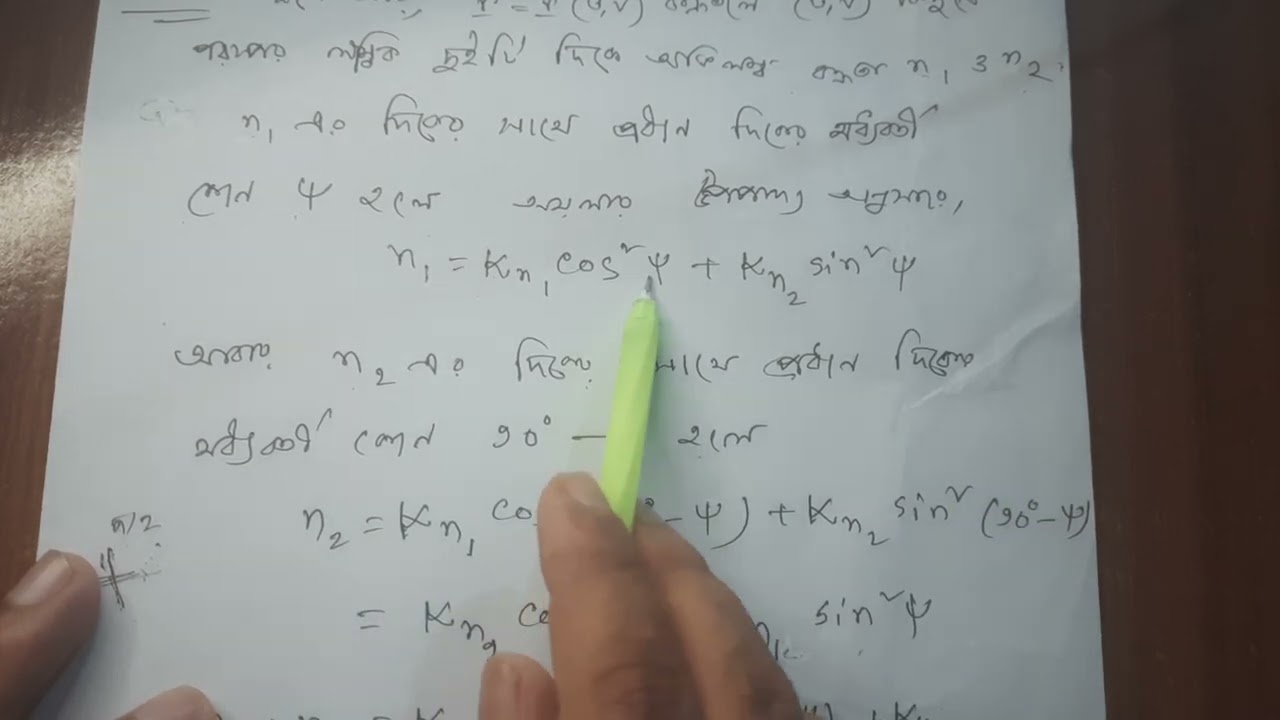 r = r (u,v) (u,v)
পরস্পর লম্বিক দুইটি দিকে অভিলম্ব বক্রতা n₁ ও n₂.
n₁ এর দিকের সাথে প্রধান দিকের মধ্যবর্তী
কোন ψ হলে অয়লার উপপাদ্য অনুসারে,
n₁ = Kn₁ cos²ψ + Kn₂ sin²ψ
আবার n₂ এর দিকের সাথে প্রধান দিকের
মধ্যবর্তী কোন 90° — হলে
n₂ = Kn₁ co - ψ) + Kn₂ sin² (90°-ψ)
π/2
= Kn sin²ψ
= K